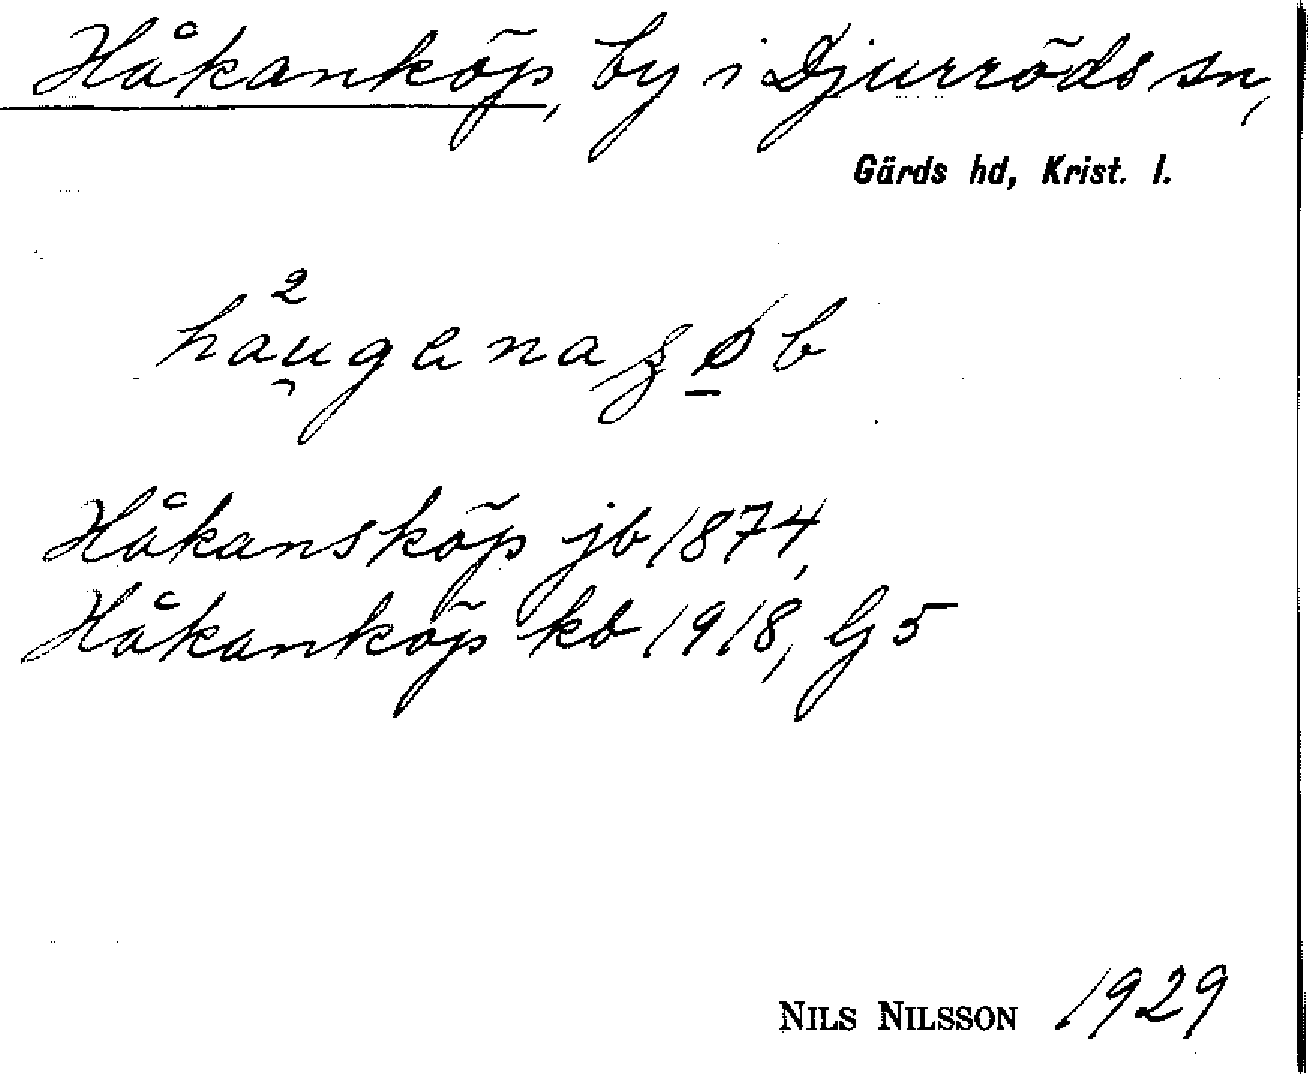 Håkanköp, by i Djurröds sn,
Gärds hd, Krist. l.
Håkansköp jb 1874,
Håkanköp kb 1918, G5
NILS NILSSON 1929